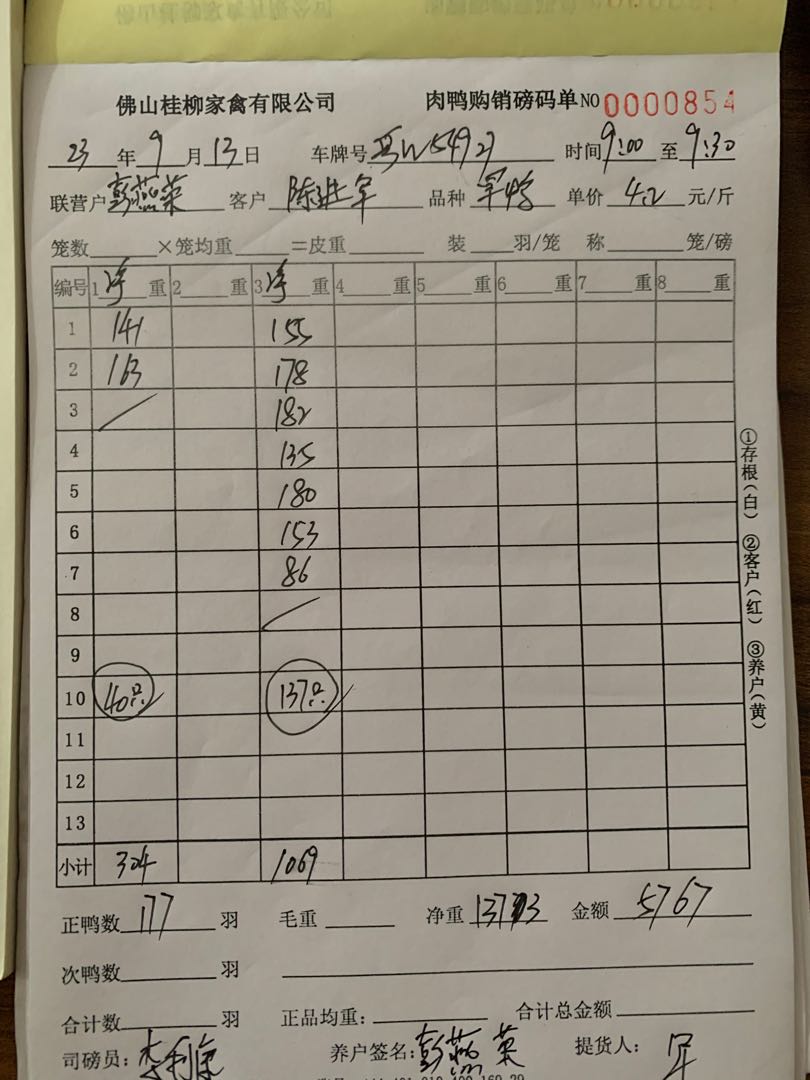 佛山桂柳家禽有限公司 肉鸭购销磅码单 NO 0000854
23 年 9 月 13 日 车牌号 W54927 时间 9:00 至 9:30
联营户 彭燕荣 客户 陈进军 品种 军鸭 单价 4.2 元/斤
笼数 ×笼均重 =皮重 装 羽/笼 称 笼/磅
编号 1 净 重 2 重 3 净 重 4 重 5 重 6 重 7 重 8 重
1 141 155
2 163 178
3 182
4 135
5 180
6 153
7 86
8
9
10 40只 137只
11
12
13
小计 304 1069
正鸭数 177 羽 毛重 净重 1373 金额 5767
次鸭数 羽
合计数 羽 正品均重: 合计总金额
司磅员: 养户签名: 彭燕荣 提货人: 军
①存根(白) ②客户(红) ③养户(黄)